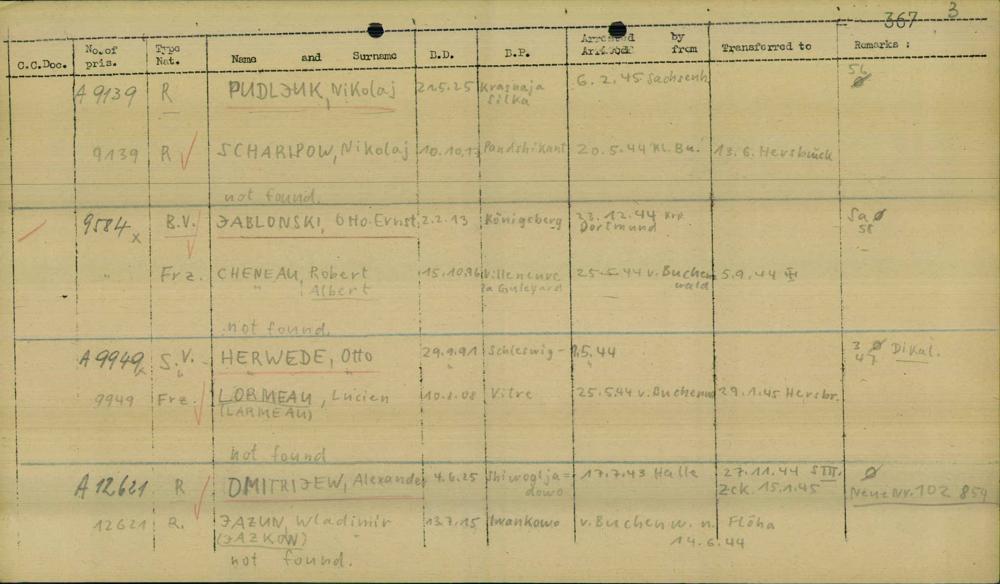 367 3
C.C.Doc. No. of pris. Type Nat. Name and Surname B.D. B.P. Arrested Arrived by from Transferred to Remarks :
56
A 9139 R PUDLJUK, Nikolaj 21.5.25 Krasnaja 6.2.45 Sachsenh.
Silka
9139 R SCHARIPOW, Nikolaj 10.10.13 Pandshikant 20.5.44 Kl. Bu. 13.6. Hersbruck
not found.
9584 x B.V. JABLONSKI, Otto-Ernst 2.2.13 Königsberg 23.12.44 Krp. Sa Ø
Dortmund 58
" Frz. CHENEAU, Robert 15.10.96 Villeneuve 25.5.44 v. Buchen 5.9.44 III
" Albert la Guleyard wald
not found.
A 9949 x S.V. HERWEDE, Otto 29.9.91 Schleswig- 1.5.44 3 Ø Dikal.
47
9949 Frz. LORMEAU, Lucien 10.8.08 Vitre 25.5.44 v. Buchenw 29.1.45 Hersbr.
(LARMEAU)
not found
A 12621 R DMITRIJEW, Alexander 4.6.25 Shiwoglja= 17.7.43 Halle 27.11.44 S III. Ø
dowo Zck. 15.1.45 Neue Nr. 102 859
12621 R. JAZUN, Wladimir 13.7.15 Iwankowo v. Buchenw. n. Flöha
(JAZKOW) 14.6.44
not found.